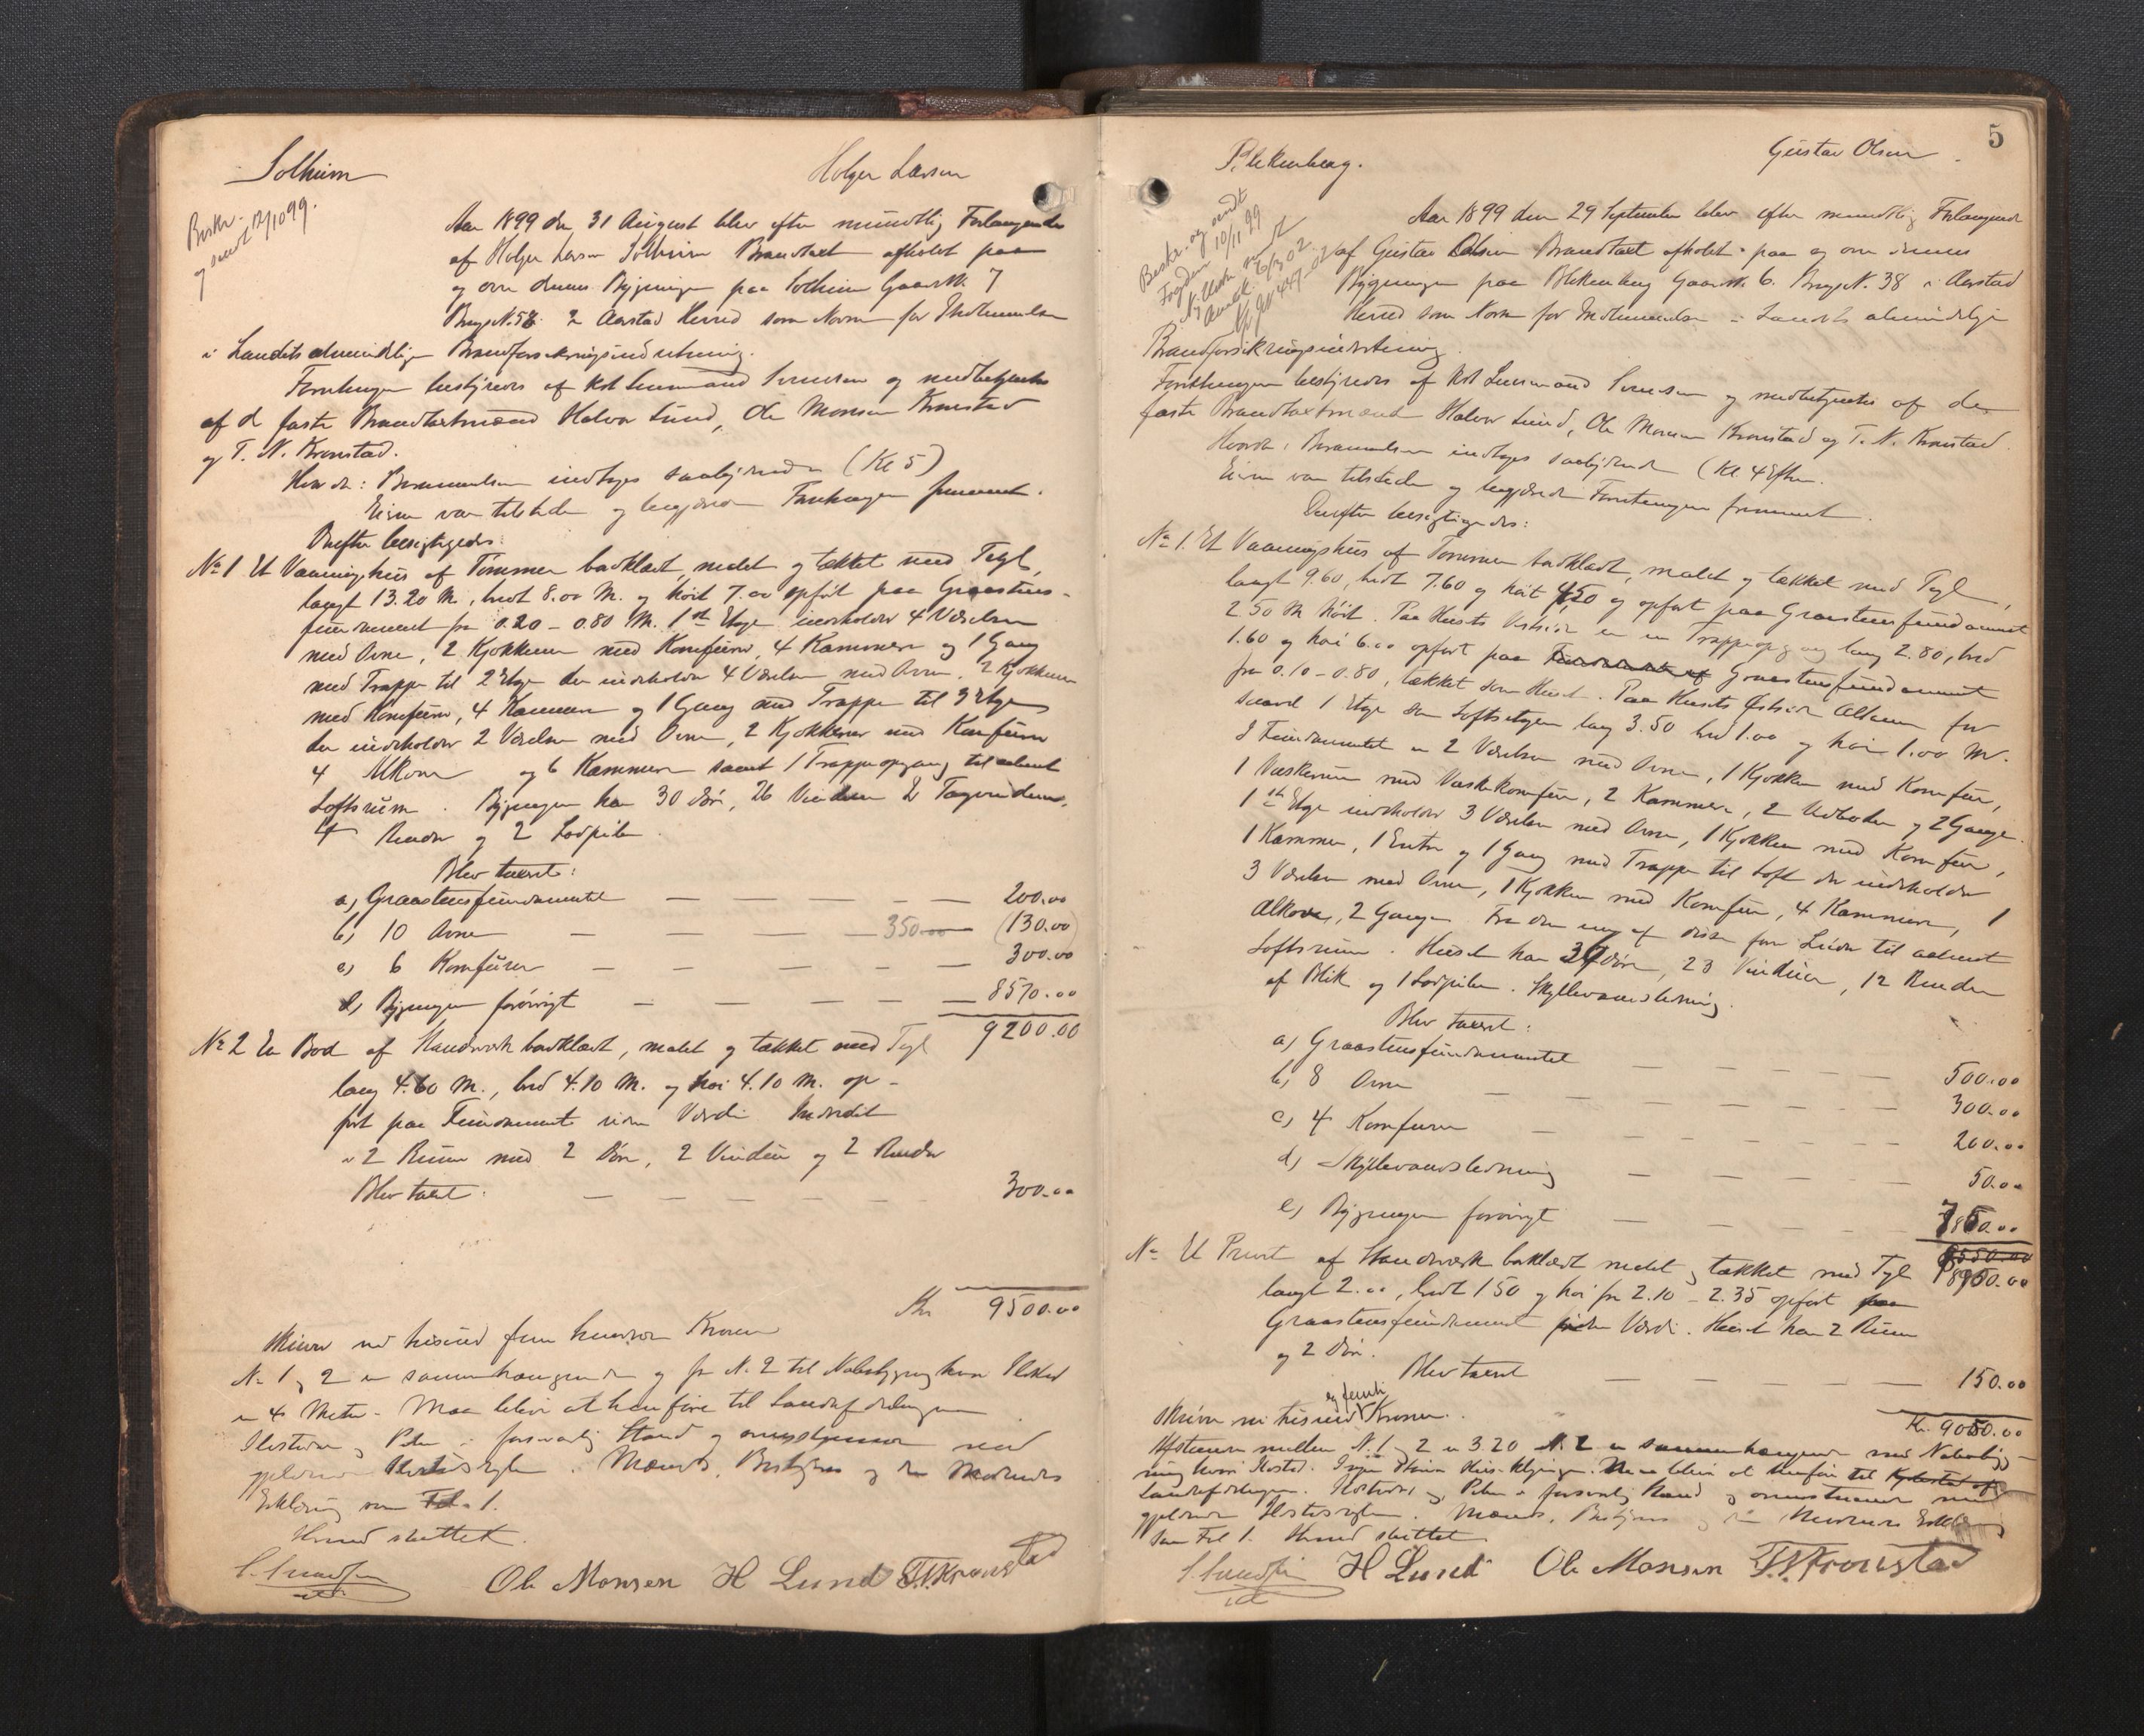 Solheim
Holger Larsen
Beskr.
og sendt 12/10 99.
Aar 1899 den 31 August blev efter mundtlig Forlangende
af Holger Larsen Solheim Brandtaxt afholdt paa
og over dennes Bygninger paa Solheim Gaards N. 7
Brugs N. 58 i Aarstad Herred som Norm for Indtrædelse
i Landets almindelige Brandforsikringsindretning.
Forretningen bestyredes af Kst Lensmand og medbetjentes
af de faste Brandtaxtmænd Halvor Lund, Ole Monsen Kronstad
og T. N. Kronstad.
Hvorda: Bevarmelsen indtoges saalydende (Kl 5)
Eieren var tilstede og begjærede Forretningen fremmet.
Derefter besigtigedes:
No 1 Et Vaaningshus af Tømmer bordklædt, malet og tækket med Tegl,
langt 13.20 M., bredt 8.00 M. og høit 7.00 opført paa Graastens-
fundament fra 0.20 - 0.80 M. 1ste Etage indeholder 4 Værelser
med Ovne, 2 Kjøkkener med Komfurer, 4 Kammere og 1 Gang
med Trappe til 2 Etage der indeholder 4 Værelser med Ovne, 2 Kjøkkener
med Komfurer, 4 Kammere og 1 Gang med Trappe til 3 Etage
der indeholder 2 Værelser med Ovne, 2 Kjøkkener med Komfurer
4 Alkover og 6 Kammere samt 1 Trappeopgang til aabent
Loftsrum. Bygningen har 30 Døre, 26 Vinduer 2 Tagvinduer,
4 Render og 2 Lodpiber.
Blev taxeret:
a) Graastensfundamentet — — — — — 200.00
b) 10 Ovne — — — — 350.00 (130.00)
c) 6 Komfurer — — — — — 300.00
d) Bygningen forøvrigt — — — — — 8570.00
9200.00
No 2 En Bod af Standværk bordklædt, malet og tækket med Tegl
lang 4.60 M., bred 4.10 M. og høi 4.10 M. op-
ført paa Fundament uden Værdi. Inddelt
i 2 Rum med 2 Døre, 2 Vinduer og 2 Render
Blev taxeret. — — — — — — 300.00
Kr. 9500.00
skriver ni tusind fem hundrede Kroner
No 1 og 2 er sammenhængende og fra N. 2 til Nabobygning hvori Ildsted
er 4 Meter. Maa blive at henføre til Landafdelingen
Ildsteder og Piber i forsvarlig Stand og overensstemmende med
gjeldende Ildstedsregler. Mænds, Bestyrers og de Mødendes
Erklæring som Fol. 1.
Hermed sluttet.
Ole Monsen H Lund T.N. Kronstad
5
Blekenberg.
Gustav Olsen
Beskr. og sendt
Fogden 10/11 99
Aar 1899 den 29 September blev efter mundtlig Forlangende
af Gustav Olsen Brandtaxt afholdt paa og over dennes
Bygninger paa Blekenberg Gaards N. 6. Brugs N. 38 i Aarstad
Herred som Norm for Indtrædelse i Landets almindelige
Brandforsikringsindretning.
Forretningen bestyredes af Kst Lensmand og medbetjentes af de
faste Brandtaxtmænd Halvor Lund, Ole Monsen Kronstad og T. N. Kronstad.
Hvorda: Bevarmelsen indtoges saalydende (Kl. 4 Efterm.
Eieren var tilstede og begjærede Forretningen fremmet.
Derefter besigtigedes:
No 1. Et Vaaningshus af Tømmer bordklædt, malet og tækket med Tegl,
langt 9.60, bredt 7.60 og høit 4,50 og opført paa Graastensfundament
2.50 M høit. Paa Husets Vestside er en Trappeopgang lang 2.80, bred
1.60 og høi 6.00 opført paa Fundament af Graastensfundament
fra 0.10 - 0.80, tækket som Huset. Paa Husets Østside Altaner for
saavel 1 Etage som Loftsetagen lang 3.50 bred 1.00 og høi 1.00 M.
I Fundamentet er 2 Værelser med Ovne, 1 Kjøkken med Komfur,
1 Vaskerum med Vaskekomfur, 2 Kammere, 2 Vedboder og 2 Gange.
1ste Etage indeholder 3 Værelser med Ovne, 1 Kjøkken med Komfur,
1 Kammer, 1 Entre og 1 Gang med Trappe til Loft der indeholder
3 Værelser med Ovne, 1 Kjøkken med Komfur, 4 Kammere, 1
Alkove, 2 Gange. Fra den ene af disse fører Leider til aabent
Loftsrum. Huset har 39 Døre, 23 Vinduer, 12 Render
af Blik og 1 Lodpibe. Skyllevandsledning.
Blev taxeret:
a) Graastensfundamentet — — — — — 500.00
b) 8 Ovne — — — — — 300.00
c) 4 Komfurer — — — — — 200.00
d) Skyllevandsledning — — — — 50.00
e) Bygningen forøvrigt — — — — 7850.00
8550.00
8900.00
No Et Privet af Standværk bordklædt malet og tækket med Tegl
langt 2.00, bredt 1.50 og høi fra 2.10 - 2.35 opført paa
Graastensfundament uden Værdi. Huset har 2 Rum
og 2 Døre.
Blev taxeret — — — — — 150.00
Kr. 9050.00
skriver ni tusind og femti Kroner.
Afstanden mellem N. 1 og 2 er 3.20 N. 2 er sammenhængende med Nabobyg-
ning hvori Ildsted. Maa blive at henføre til
Landafdelingen. Ildsteder og Piber i forsvarlig Stand og overensstemmende med
gjeldende Ildstedsregler. Mænds, Bestyrers og de Mødendes Erklæring
som Fol 1. Hermed sluttet.
H Lund Ole Monsen T.N. Kronstad